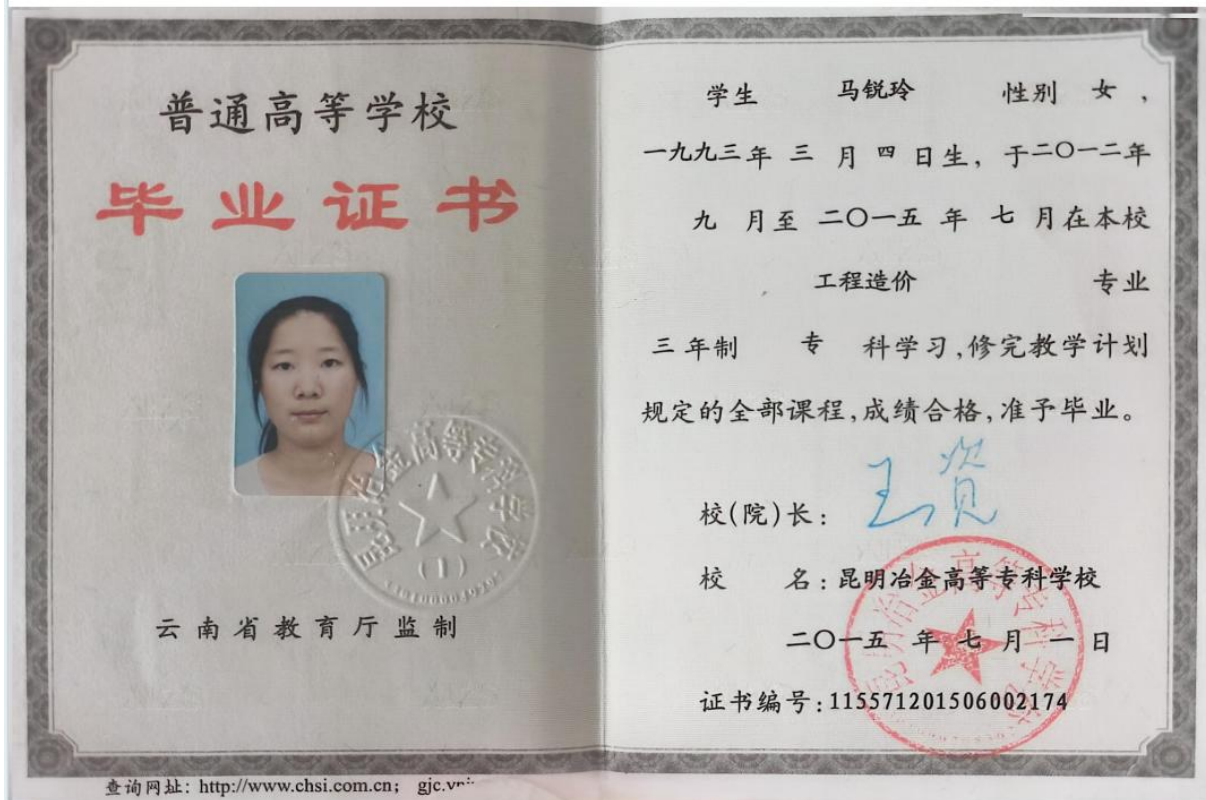 普通高等学校
毕业证书
昆明冶金高等专科学校
(1)
云南省教育厅监制
学生 马锐玲 性别 女,
一九九三年 三 月 四 日生, 于二〇一二年
九 月至 二〇一五 年 七 月在本校
工程造价 专业
三 年制 专 科学习,修完教学计划
规定的全部课程,成绩合格,准予毕业。
校(院)长:
校 名:昆明冶金高等专科学校
二〇一五 年 七 月 一 日
证书编号:115571201506002174
昆明冶金高等专科学校
查询网址: http://www.chsi.com.cn; gjc.